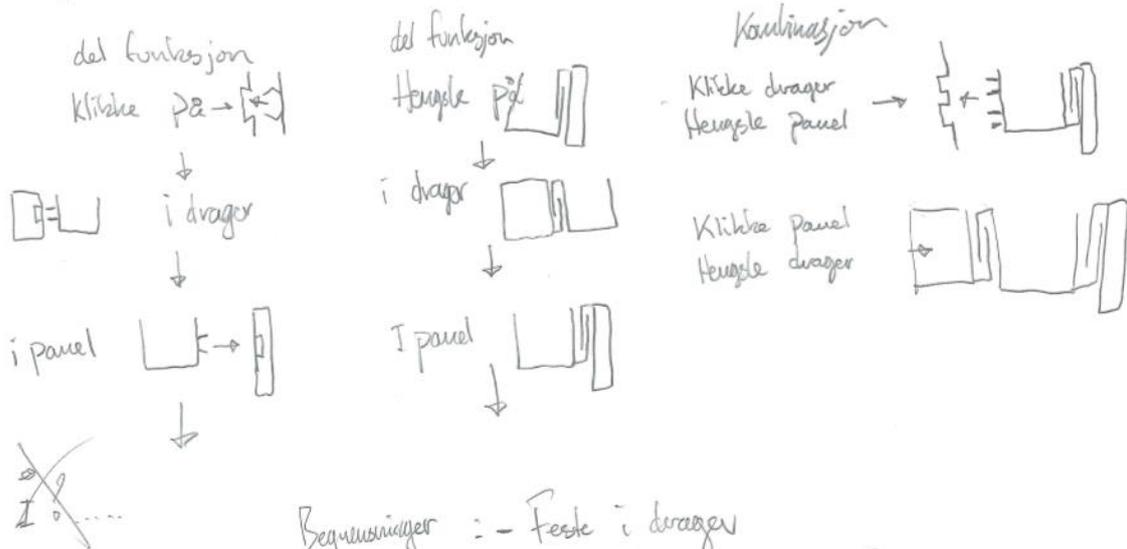 del funksjon
Klikke på
i drager
i panel
del funksjon
Hengsle på
i drager
I panel
Kombinasjon
Klikke drager
Hengsle panel
Klikke panel
Hengsle drager
Begrensninger : - Feste i drager